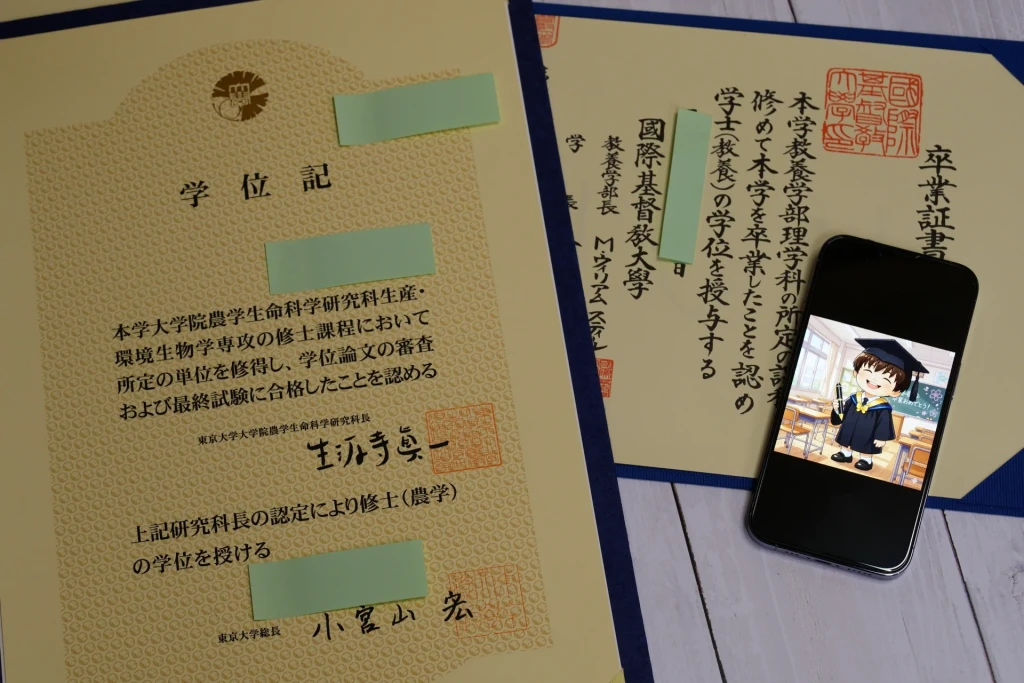 学位記
本学大学院農学生命科学研究科生産・
環境生物学専攻の修士課程において
所定の単位を修得し、学位論文の審査
および最終試験に合格したことを認める
東京大学大学院農学生命科学研究科長
生源寺眞一
上記研究科長の認定により修士（農学）
の学位を授ける
東京大学総長
小宮山宏
國際
基督教
大學印
卒業証書
本学教養学部理学科の所定の
修めて本学を卒業したことを認め
学士（教養）の学位を授与する
日
國際基督教大學
教養学部長 M・ウィリアム スティル
学長